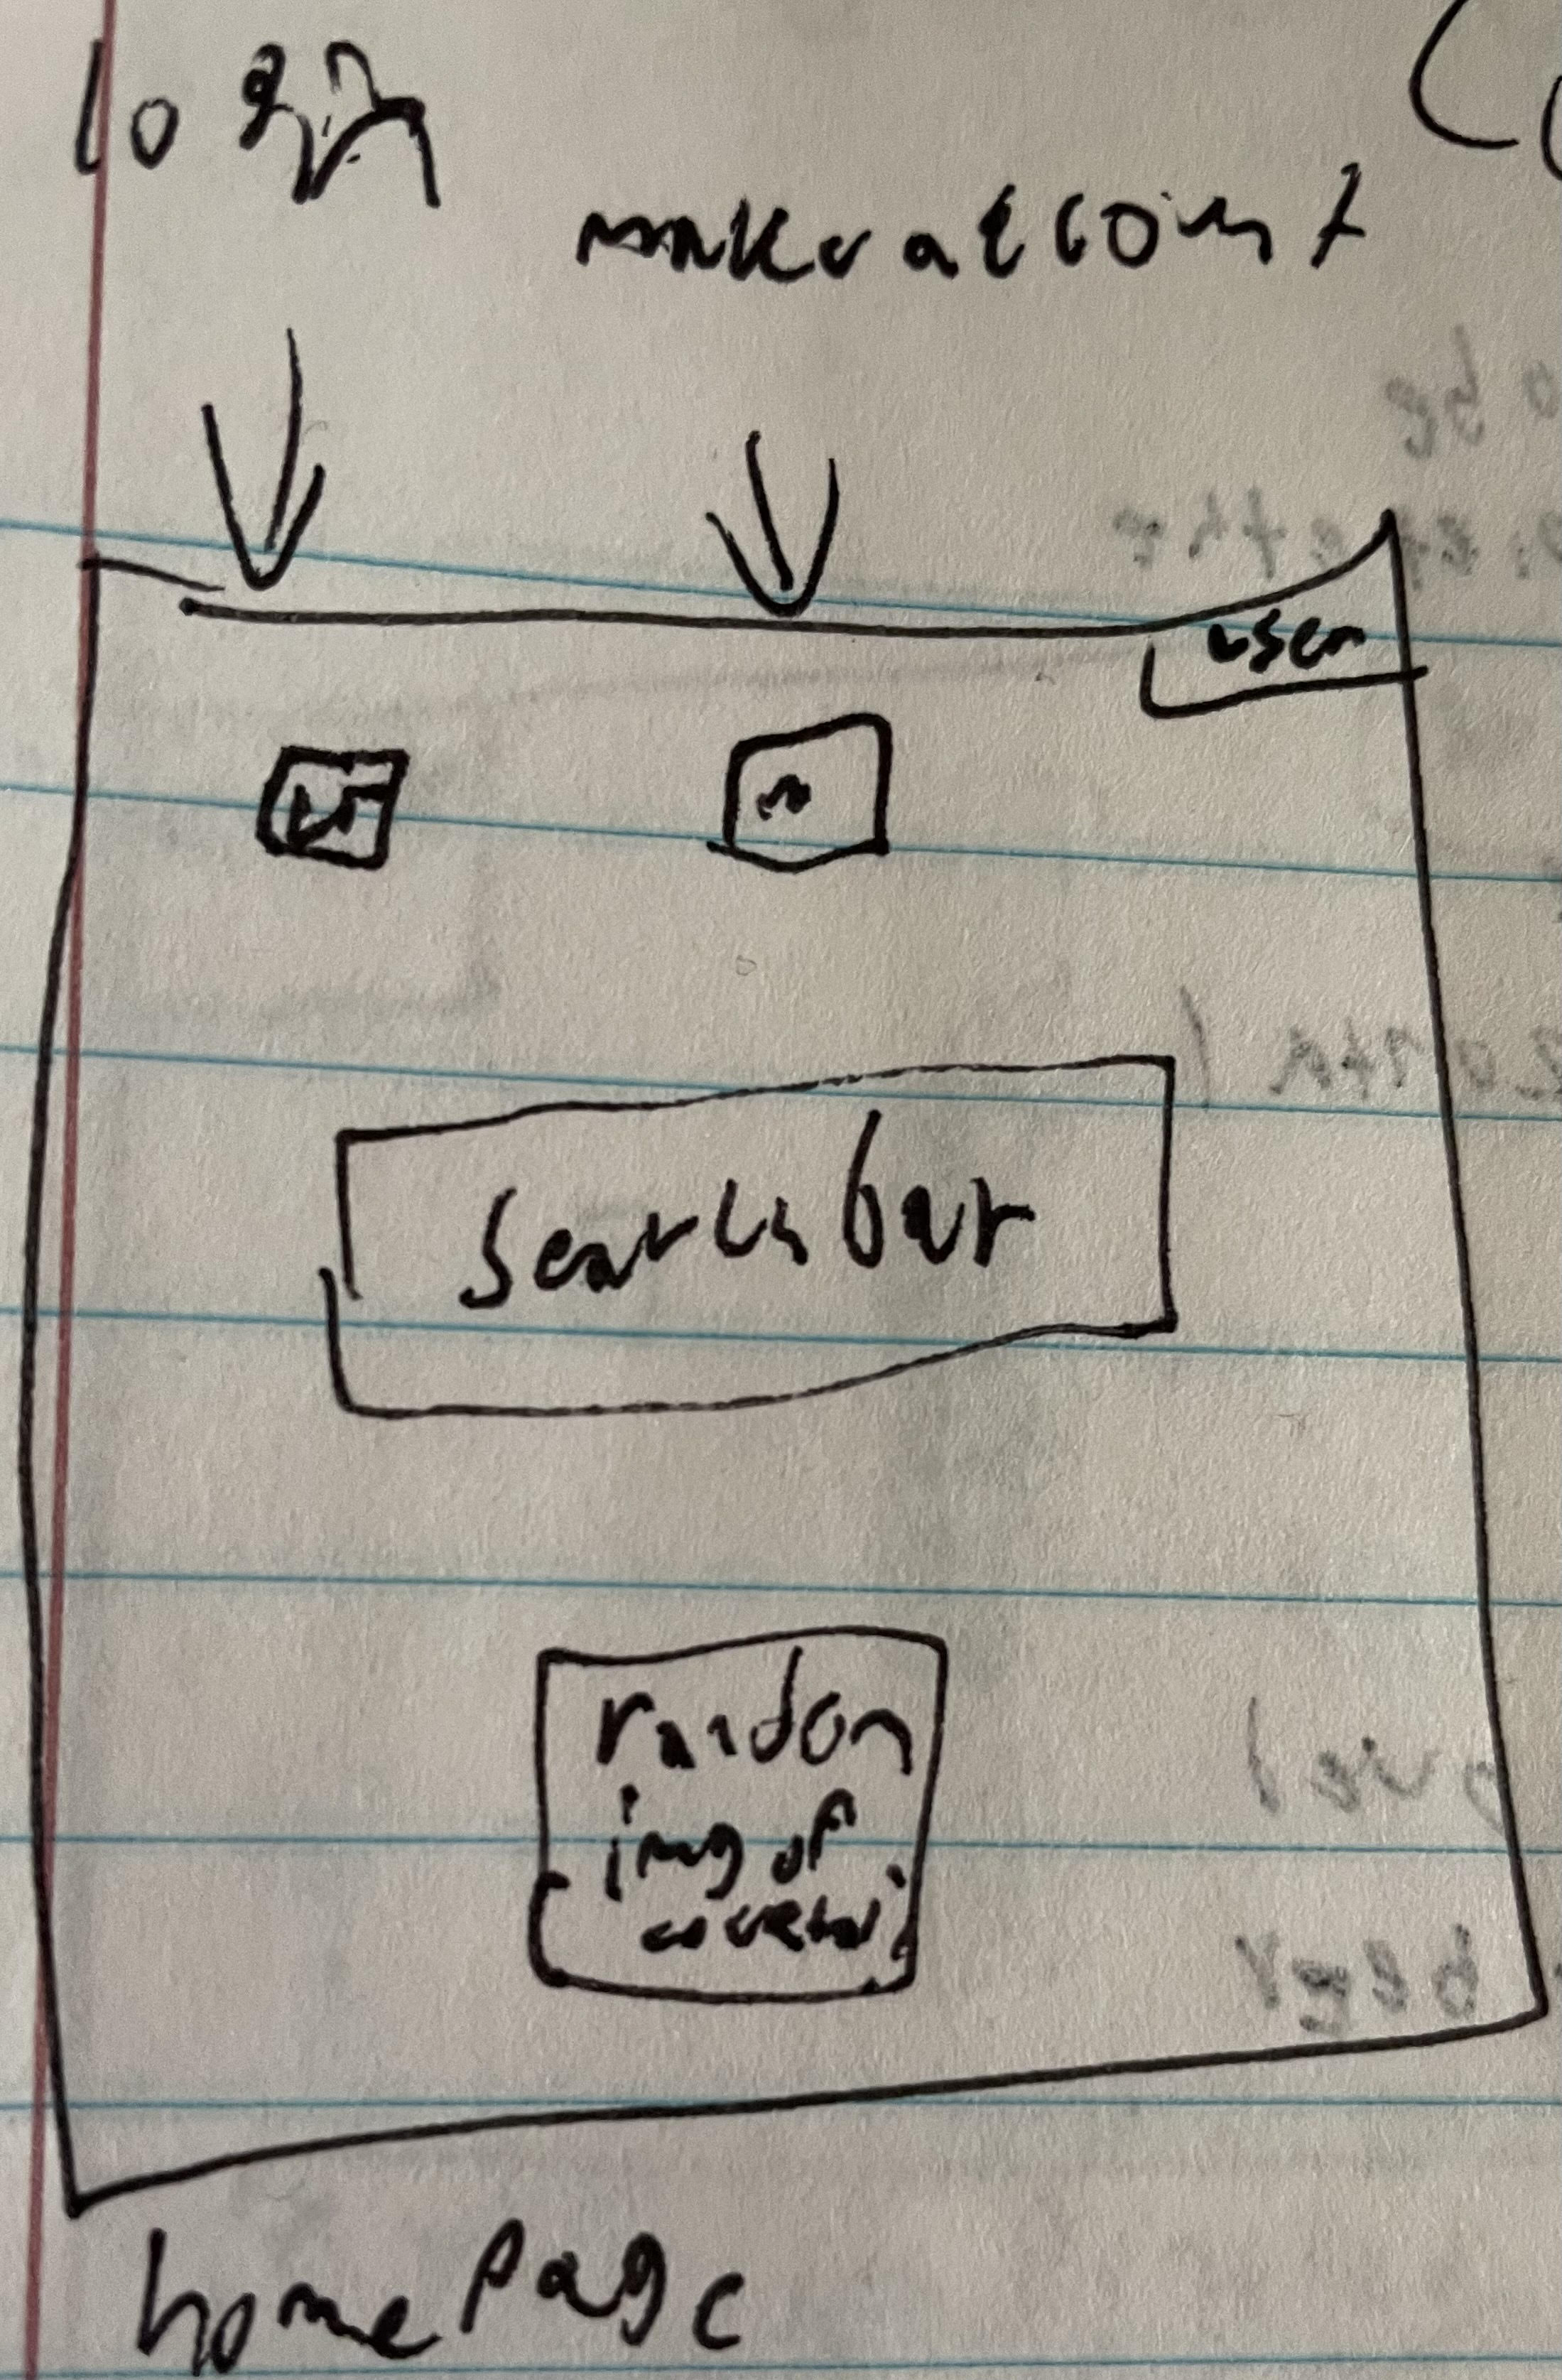 login
make account
user
search bar
random
img of
home page